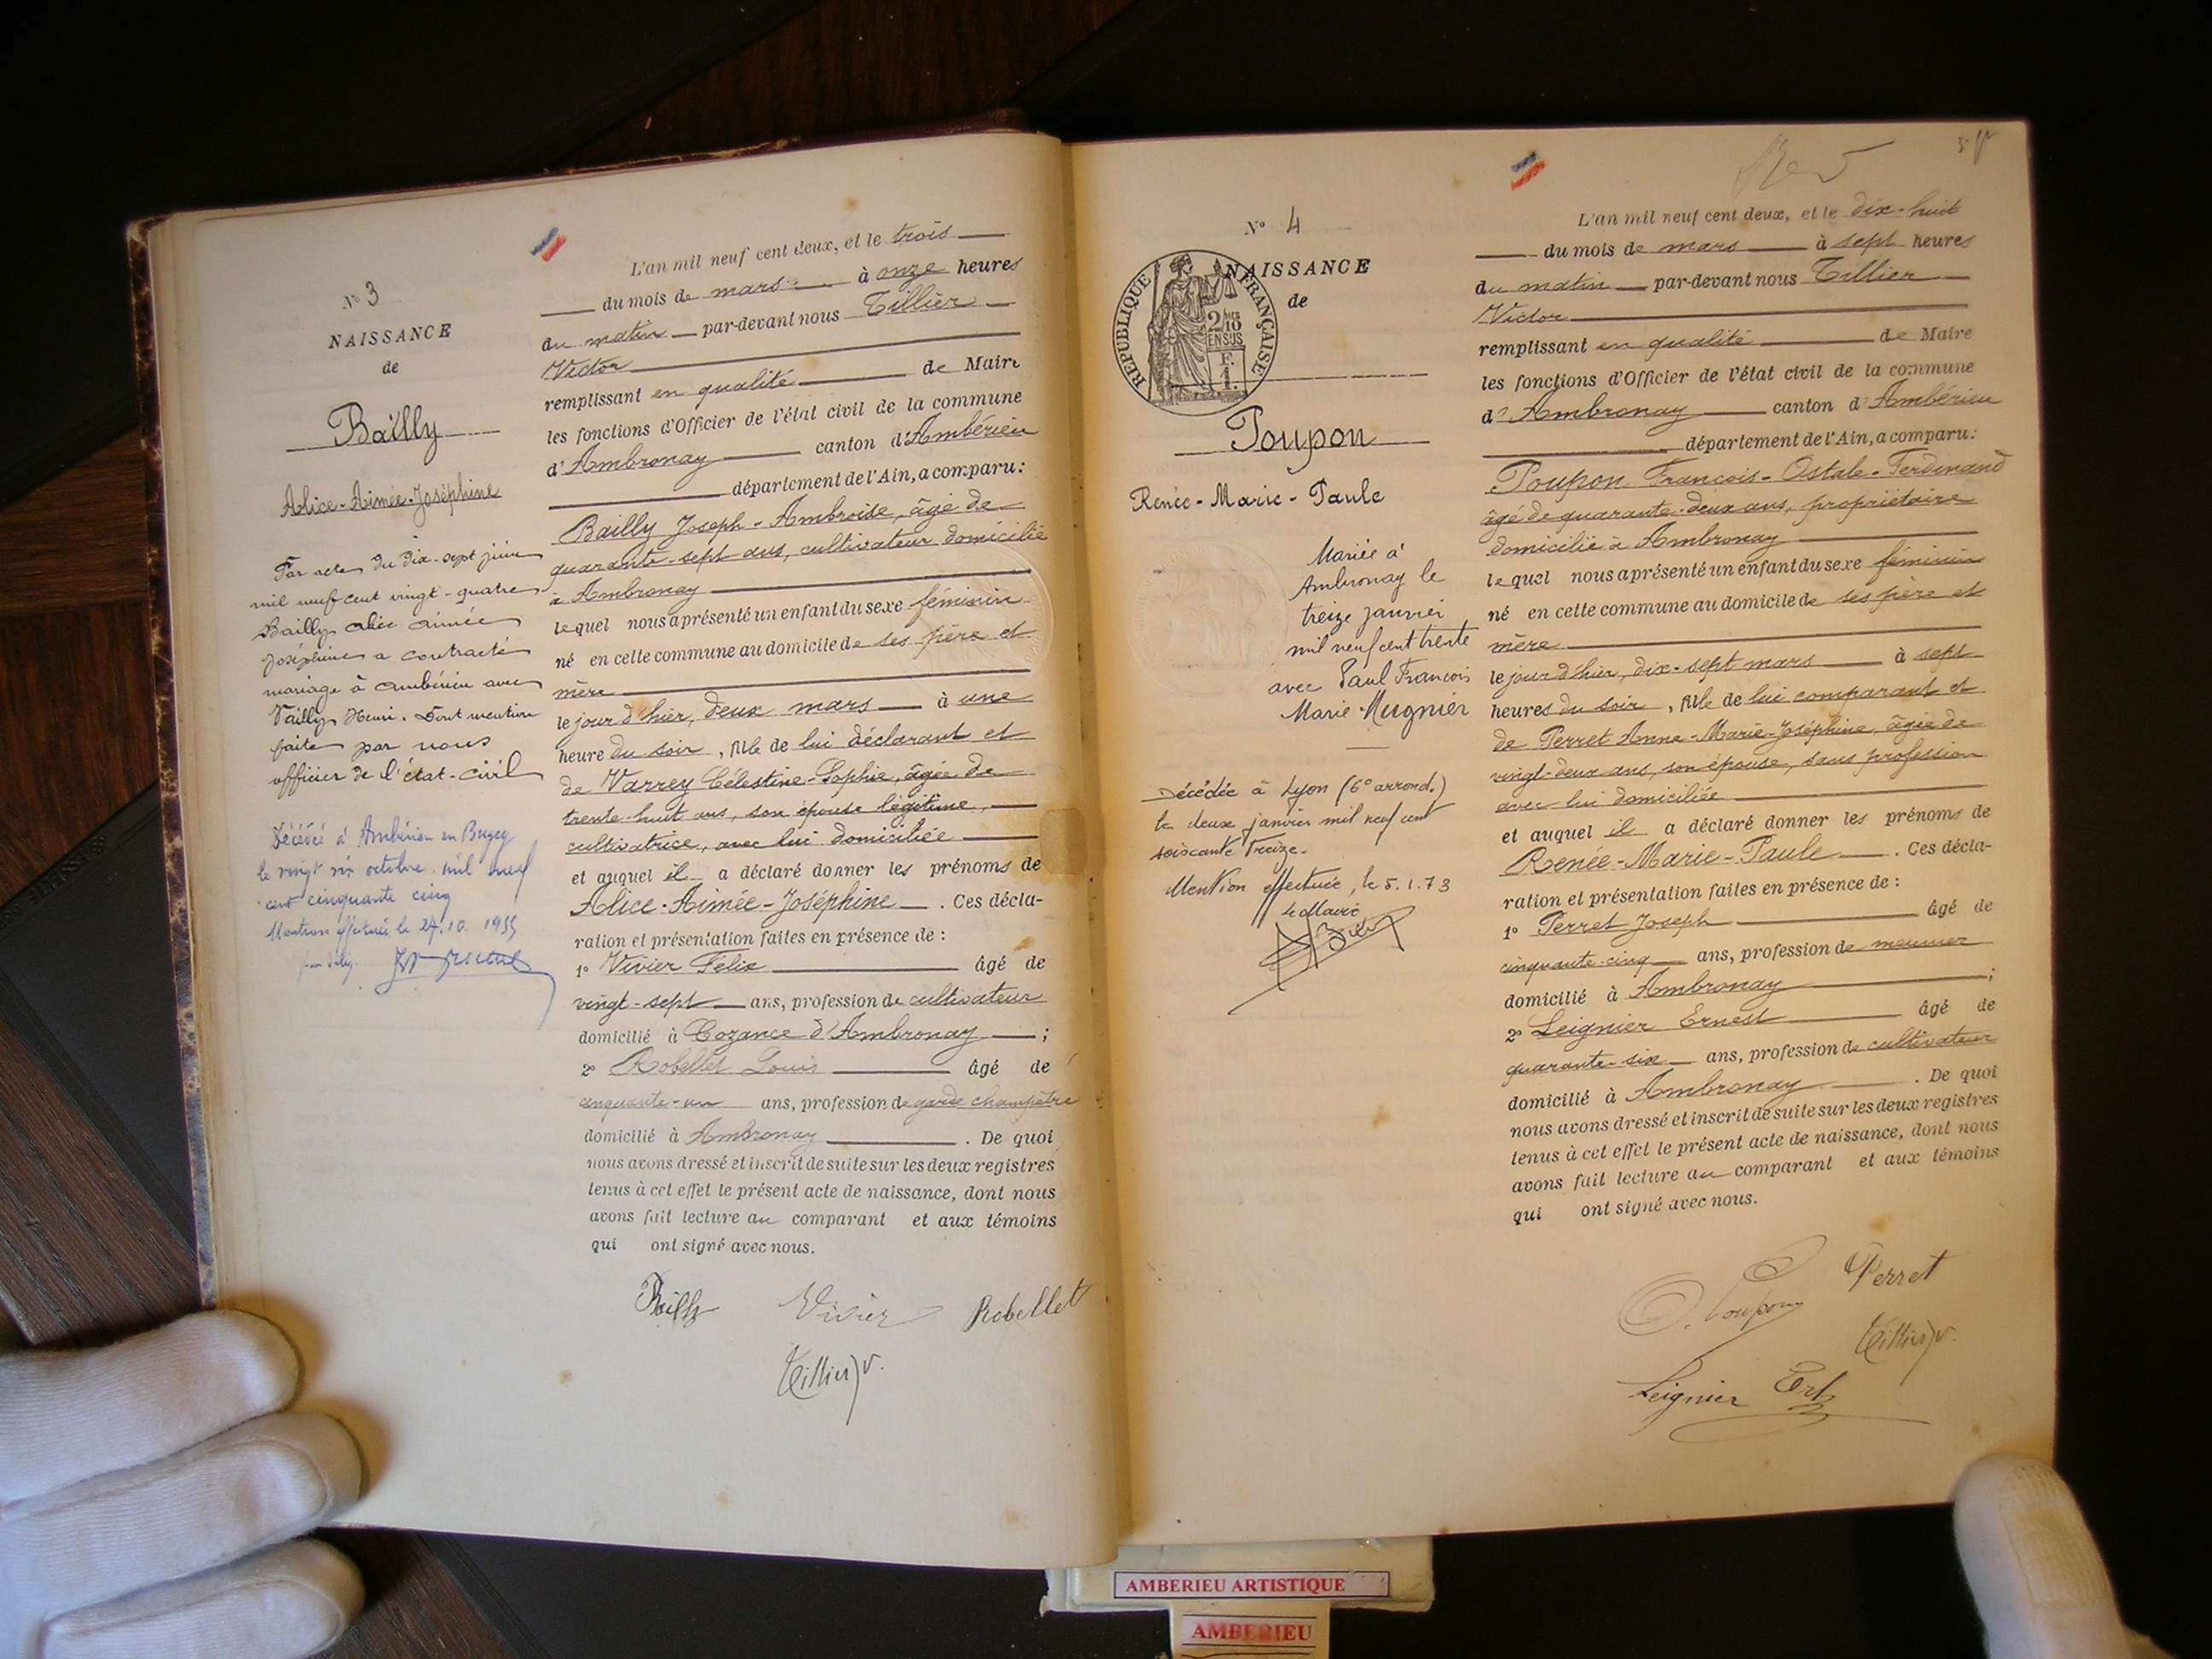 N° 3
NAISSANCE
de
Bailly
Alice-Aimée-Joséphine
Par acte du dix-sept juin
mil neuf cent vingt-quatre
Bailly alice aimée
joséphine a contracté
mariage à ambérieu avec
Vailly Henri. Dont mention
faite par nous
officier de l'état-civil
Décédée à Ambérieu en Bugey
le vingt six octobre mil neuf
cent cinquante cinq
Mention effectuée le 27.10.1955
L'an mil neuf cent deux, et le trois
du mois de mars à onze heures
du matin par-devant nous Tillier
Victor
remplissant en qualité de Maire
les fonctions d'Officier de l'état civil de la commune
d'Ambronay canton d'Ambérieu
département de l'Ain, a comparu:
Bailly Joseph-Ambroise, âgé de
quarante-sept ans, cultivateur domicilié
à Ambronay
lequel nous a présenté un enfant du sexe féminin
né en cette commune au domicile de ses père et
mère
le jour d'hier, deux mars à une
heure du soir, fille de lui déclarant et
de Varrey Célestine-Sophie, âgée de
trente-huit ans, son épouse légitime,
cultivatrice, avec lui domiciliée
et auquel il a déclaré donner les prénoms de
Alice-Aimée-Joséphine. Ces décla-
ration et présentation faites en présence de :
1° Vivier Félix âgé de
vingt-sept ans, profession de cultivateur
domicilié à Cozance d'Ambronay ;
2° Robellet Louis âgé de
cinquante-un ans, profession de garde champêtre
domicilié à Ambronay . De quoi
nous avons dressé et inscrit de suite sur les deux registres
tenus à cet effet le présent acte de naissance, dont nous
avons fait lecture au comparant et aux témoins
qui ont signé avec nous.
Bailly Vivier Robellet
Tillier v.
N° 4
NAISSANCE
de
REPUBLIQUE FRANÇAISE
2/10
EN SUS
F.
1.
Poupon
Renée-Marie-Paule
Mariée à
Ambronay le
treize janvier
mil neuf cent trente
avec Paul François
Marie Mugnier
Décédée à Lyon (6e arrond.)
le deux janvier mil neuf cent
soixante treize.
Mention effectuée, le 5.1.73
Le Maire
L'an mil neuf cent deux, et le dix-huit
du mois de mars à sept heures
du matin par-devant nous Tillier
Victor
remplissant en qualité de Maire
les fonctions d'Officier de l'état civil de la commune
d'Ambronay canton d'Ambérieu
département de l'Ain, a comparu:
Poupon François-Ostale-Ferdinand
âgé de quarante-deux ans, propriétaire
domicilié à Ambronay
lequel nous a présenté un enfant du sexe féminin
né en cette commune au domicile de ses père et
mère
le jour d'hier, dix-sept mars à sept
heures du soir, fille de lui comparant et
de Perret Anne-Marie-Joséphine, âgée de
vingt-deux ans, son épouse, sans profession
avec lui domiciliée
et auquel il a déclaré donner les prénoms de
Renée-Marie-Paule. Ces décla-
ration et présentation faites en présence de :
1° Perret Joseph âgé de
cinquante-cinq ans, profession de meunier
domicilié à Ambronay ;
2° Leignier Ernest âgé de
quarante-six ans, profession de cultivateur
domicilié à Ambronay . De quoi
nous avons dressé et inscrit de suite sur les deux registres
tenus à cet effet le présent acte de naissance, dont nous
avons fait lecture au comparant et aux témoins
qui ont signé avec nous.
O. Poupon Perret
Tillier v.
Leignier Ert
AMBERIEU ARTISTIQUE
AMBERIEU